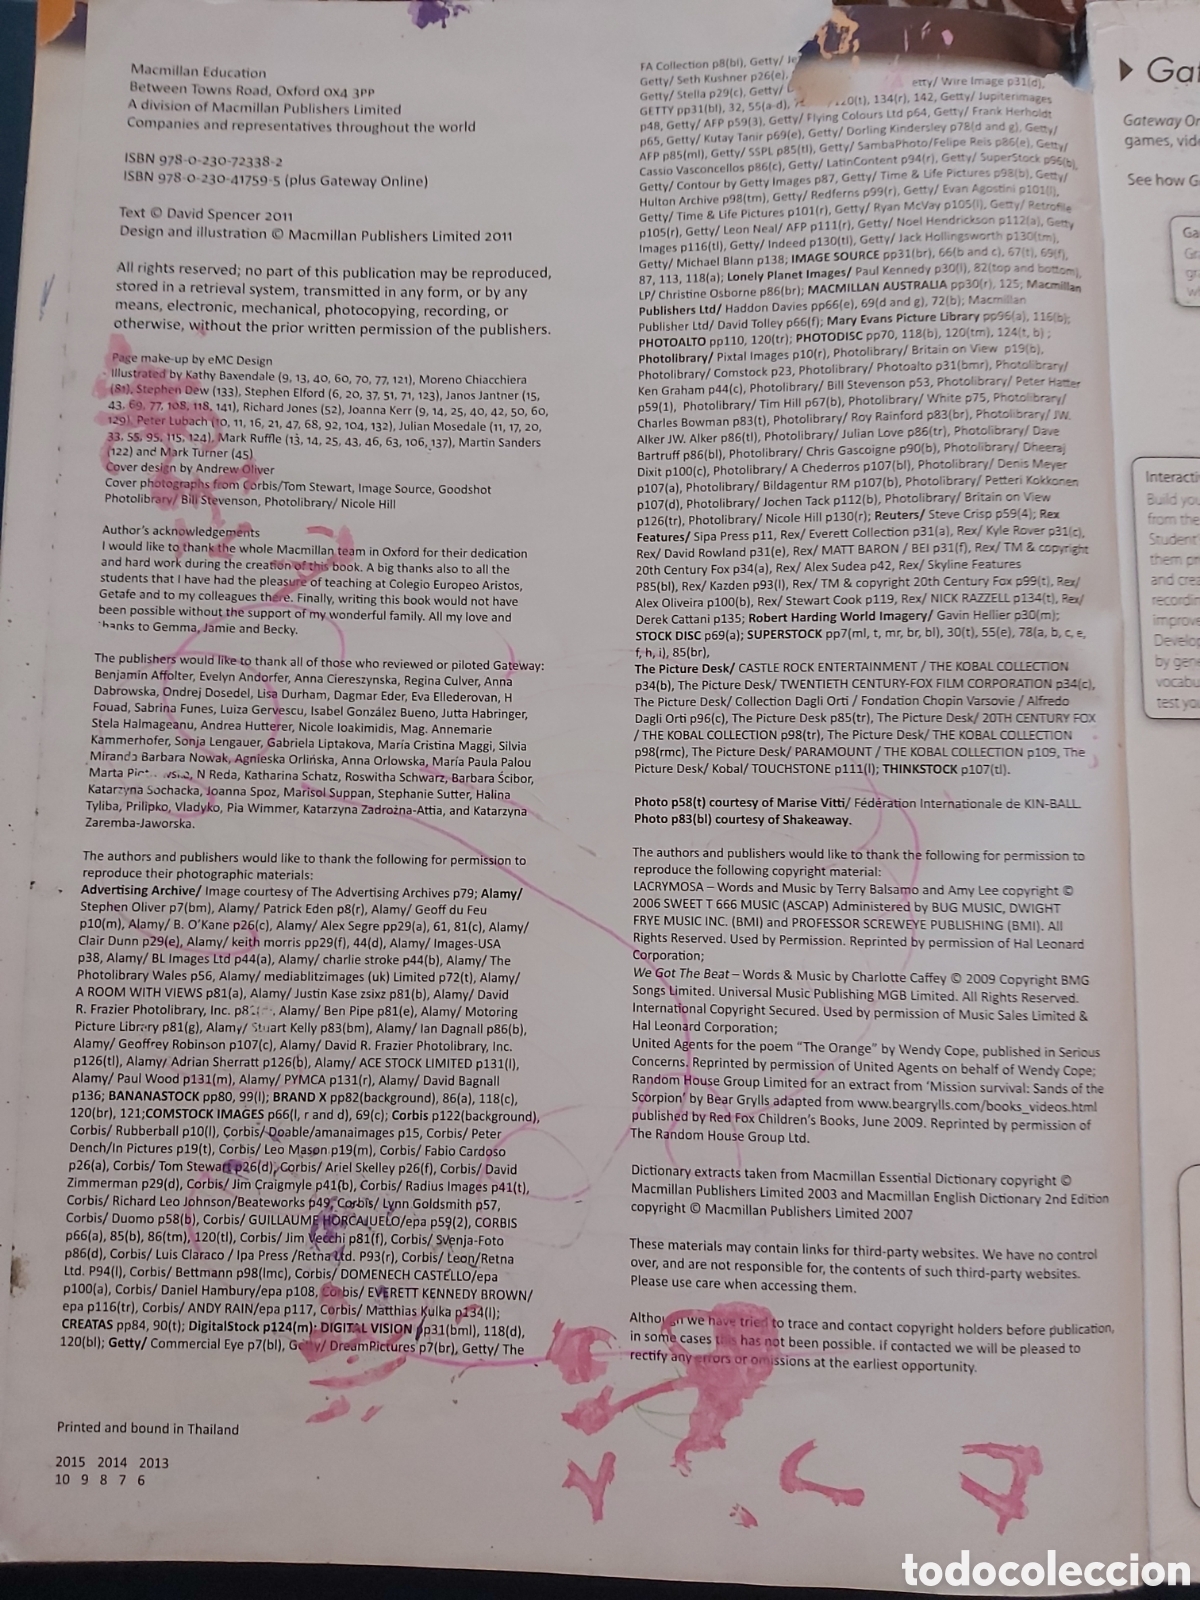 Macmillan Education
Between Towns Road, Oxford OX4 3PP
A division of Macmillan Publishers Limited
Companies and representatives throughout the world
ISBN 978-0-230-72338-2
ISBN 978-0-230-41759-5 (plus Gateway Online)
Text © David Spencer 2011
Design and illustration © Macmillan Publishers Limited 2011
All rights reserved; no part of this publication may be reproduced,
stored in a retrieval system, transmitted in any form, or by any
means, electronic, mechanical, photocopying, recording, or
otherwise, without the prior written permission of the publishers.
Page make-up by eMC Design
Illustrated by Kathy Baxendale (9, 13, 40, 60, 70, 77, 121), Moreno Chiacchiera
(81), Stephen Dew (133), Stephen Elford (6, 20, 37, 51, 71, 123), Janos Jantner (15,
43, 69, 77, 108, 118, 141), Richard Jones (52), Joanna Kerr (9, 14, 25, 40, 42, 50, 60,
129), Peter Lubach (10, 11, 16, 21, 47, 68, 92, 104, 132), Julian Mosedale (11, 17, 20,
33, 55, 95, 115, 124), Mark Ruffle (13, 14, 25, 43, 46, 63, 106, 137), Martin Sanders
(122) and Mark Turner (45)
Cover design by Andrew Oliver
Cover photographs from Corbis/Tom Stewart, Image Source, Goodshot
Photolibrary/ Bill Stevenson, Photolibrary/ Nicole Hill
Author's acknowledgements
I would like to thank the whole Macmillan team in Oxford for their dedication
and hard work during the creation of this book. A big thanks also to all the
students that I have had the pleasure of teaching at Colegio Europeo Aristos,
Getafe and to my colleagues there. Finally, writing this book would not have
been possible without the support of my wonderful family. All my love and
thanks to Gemma, Jamie and Becky.
The publishers would like to thank all of those who reviewed or piloted Gateway:
Benjamin Affolter, Evelyn Andorfer, Anna Ciereszynska, Regina Culver, Anna
Dabrowska, Ondrej Dosedel, Lisa Durham, Dagmar Eder, Eva Ellederovan, H
Fouad, Sabrina Funes, Luiza Gervescu, Isabel González Bueno, Jutta Habringer,
Stela Halmageanu, Andrea Hutterer, Nicole Ioakimidis, Mag. Annemarie
Kammerhofer, Sonja Lengauer, Gabriela Liptakova, María Cristina Maggi, Silvia
Miranda Barbara Nowak, Agnieska Orlińska, Anna Orlowska, María Paula Palou
Marta N Reda, Katharina Schatz, Roswitha Schwarz, Barbara Ścibor,
Katarzyna Sochacka, Joanna Spoz, Marisol Suppan, Stephanie Sutter, Halina
Tyliba, Prilipko, Vladyko, Pia Wimmer, Katarzyna Zadrożna-Attia, and Katarzyna
Zaremba-Jaworska.
The authors and publishers would like to thank the following for permission to
reproduce their photographic materials:
Advertising Archive/ Image courtesy of The Advertising Archives p79; Alamy/
Stephen Oliver p7(bm), Alamy/ Patrick Eden p8(r), Alamy/ Geoff du Feu
p10(m), Alamy/ B. O'Kane p26(c), Alamy/ Alex Segre pp29(a), 61, 81(c), Alamy/
Clair Dunn p29(e), Alamy/ keith morris pp29(f), 44(d), Alamy/ Images-USA
p38, Alamy/ BL Images Ltd p44(a), Alamy/ charlie stroke p44(b), Alamy/ The
Photolibrary Wales p56, Alamy/ mediablitzimages (uk) Limited p72(t), Alamy/
A ROOM WITH VIEWS p81(a), Alamy/ Justin Kase zsixz p81(b), Alamy/ David
R. Frazier Photolibrary, Inc. Alamy/ Ben Pipe p81(e), Alamy/ Motoring
Picture Library p81(g), Alamy/ Stuart Kelly p83(bm), Alamy/ Ian Dagnall p86(b),
Alamy/ Geoffrey Robinson p107(c), Alamy/ David R. Frazier Photolibrary, Inc.
p126(tl), Alamy/ Adrian Sherratt p126(b), Alamy/ ACE STOCK LIMITED p131(l),
Alamy/ Paul Wood p131(m), Alamy/ PYMCA p131(r), Alamy/ David Bagnall
p136; BANANASTOCK pp80, 99(l); BRAND X pp82(background), 86(a), 118(c),
120(br), 121;COMSTOCK IMAGES p66(l, r and d), 69(c); Corbis p122(background),
Corbis/ Rubberball p10(l), Corbis/ Doable/amanaimages p15, Corbis/ Peter
Dench/In Pictures p19(t), Corbis/ Leo Mason p19(m), Corbis/ Fabio Cardoso
p26(a), Corbis/ Tom Stewart p26(d), Corbis/ Ariel Skelley p26(f), Corbis/ David
Zimmerman p29(d), Corbis/ Jim Craigmyle p41(b), Corbis/ Radius Images p41(t),
Corbis/ Richard Leo Johnson/Beateworks p49, Corbis/ Lynn Goldsmith p57,
Corbis/ Duomo p58(b), Corbis/ GUILLAUME HORCAJUELO/epa p59(2), CORBIS
p66(a), 85(b), 86(tm), 120(tl), Corbis/ Jim Vecchi p81(f), Corbis/ Svenja-Foto
p86(d), Corbis/ Luis Claraco / Ipa Press /Retna Ltd. P93(r), Corbis/ Leon/Retna
Ltd. P94(l), Corbis/ Bettmann p98(lmc), Corbis/ DOMENECH CASTELLO/epa
p100(a), Corbis/ Daniel Hambury/epa p108, Corbis/ EVERETT KENNEDY BROWN/
epa p116(tr), Corbis/ ANDY RAIN/epa p117, Corbis/ Matthias Kulka p134(l);
CREATAS pp84, 90(t); DigitalStock p124(m); DIGITAL VISION pp31(bml), 118(d),
120(bl); Getty/ Commercial Eye p7(bl), Getty/ DreamPictures p7(br), Getty/ The
Printed and bound in Thailand
2015 2014 2013
10 9 8 7 6
FA Collection p8(bl), Getty/
Getty/ Seth Kushner p26(e), etty/ Wire Image p31(d),
Getty/ Stella p29(c), Getty/ 120(t), 134(r), 142, Getty/ Jupiterimages
GETTY pp31(bl), 32, 55(a-d), Getty/ Frank Herholdt
p48, Getty/ AFP p59(3), Getty/ Flying Colours Ltd p64, Getty/
p65, Getty/ Kutay Tanir p69(e), Getty/ Dorling Kindersley p78(d and g), Getty/
AFP p85(ml), Getty/ SSPL p85(tl), Getty/ SambaPhoto/Felipe Reis p86(e), Getty/
Cassio Vasconcellos p86(c), Getty/ LatinContent p94(r), Getty/ SuperStock p96(b),
Getty/ Contour by Getty Images p87, Getty/ Time & Life Pictures p98(b), Getty/
Hulton Archive p98(tm), Getty/ Redferns p99(r), Getty/ Evan Agostini p101(l),
Getty/ Time & Life Pictures p101(r), Getty/ Ryan McVay p105(l), Getty/ Retrofile
p105(r), Getty/ Leon Neal/ AFP p111(r), Getty/ Noel Hendrickson p112(a), Getty
Images p116(tl), Getty/ Indeed p130(tl), Getty/ Jack Hollingsworth p130(tm),
Getty/ Michael Blann p138; IMAGE SOURCE pp31(br), 66(b and c), 67(t), 69(f),
87, 113, 118(a); Lonely Planet Images/ Paul Kennedy p30(l), 82(top and bottom),
LP/ Christine Osborne p86(br); MACMILLAN AUSTRALIA pp30(r), 125; Macmillan
Publishers Ltd/ Haddon Davies pp66(e), 69(d and g), 72(b); Macmillan
Publisher Ltd/ David Tolley p66(f); Mary Evans Picture Library pp96(a), 116(b);
PHOTOALTO pp110, 120(tr); PHOTODISC pp70, 118(b), 120(tm), 124(t, b) ;
Photolibrary/ Pixtal Images p10(r), Photolibrary/ Britain on View p19(b),
Photolibrary/ Comstock p23, Photolibrary/ Photoalto p31(bmr), Photolibrary/
Ken Graham p44(c), Photolibrary/ Bill Stevenson p53, Photolibrary/ Peter Hatter
p59(1), Photolibrary/ Tim Hill p67(b), Photolibrary/ White p75, Photolibrary/
Charles Bowman p83(t), Photolibrary/ Roy Rainford p83(br), Photolibrary/ JW.
Alker JW. Alker p86(tl), Photolibrary/ Julian Love p86(tr), Photolibrary/ Dave
Bartruff p86(bl), Photolibrary/ Chris Gascoigne p90(b), Photolibrary/ Dheeraj
Dixit p100(c), Photolibrary/ A Chederros p107(bl), Photolibrary/ Denis Meyer
p107(a), Photolibrary/ Bildagentur RM p107(b), Photolibrary/ Petteri Kokkonen
p107(d), Photolibrary/ Jochen Tack p112(b), Photolibrary/ Britain on View
p126(tr), Photolibrary/ Nicole Hill p130(r); Reuters/ Steve Crisp p59(4); Rex
Features/ Sipa Press p11, Rex/ Everett Collection p31(a), Rex/ Kyle Rover p31(c),
Rex/ David Rowland p31(e), Rex/ MATT BARON / BEI p31(f), Rex/ TM & copyright
20th Century Fox p34(a), Rex/ Alex Sudea p42, Rex/ Skyline Features
P85(bl), Rex/ Kazden p93(l), Rex/ TM & copyright 20th Century Fox p99(t), Rex/
Alex Oliveira p100(b), Rex/ Stewart Cook p119, Rex/ NICK RAZZELL p134(t), Rex/
Derek Cattani p135; Robert Harding World Imagery/ Gavin Hellier p30(m);
STOCK DISC p69(a); SUPERSTOCK pp7(ml, t, mr, br, bl), 30(t), 55(e), 78(a, b, c, e,
f, h, i), 85(br),
The Picture Desk/ CASTLE ROCK ENTERTAINMENT / THE KOBAL COLLECTION
p34(b), The Picture Desk/ TWENTIETH CENTURY-FOX FILM CORPORATION p34(c),
The Picture Desk/ Collection Dagli Orti / Fondation Chopin Varsovie / Alfredo
Dagli Orti p96(c), The Picture Desk p85(tr), The Picture Desk/ 20TH CENTURY FOX
/ THE KOBAL COLLECTION p98(tr), The Picture Desk/ THE KOBAL COLLECTION
p98(rmc), The Picture Desk/ PARAMOUNT / THE KOBAL COLLECTION p109, The
Picture Desk/ Kobal/ TOUCHSTONE p111(l); THINKSTOCK p107(tl).
Photo p58(t) courtesy of Marise Vitti/ Fédération Internationale de KIN-BALL
Photo p83(bl) courtesy of Shakeaway.
The authors and publishers would like to thank the following for permission to
reproduce the following copyright material:
LACRYMOSA – Words and Music by Terry Balsamo and Amy Lee copyright ©
2006 SWEET T 666 MUSIC (ASCAP) Administered by BUG MUSIC, DWIGHT
FRYE MUSIC INC. (BMI) and PROFESSOR SCREWEYE PUBLISHING (BMI). All
Rights Reserved. Used by Permission. Reprinted by permission of Hal Leonard
Corporation;
We Got The Beat – Words & Music by Charlotte Caffey © 2009 Copyright BMG
Songs Limited. Universal Music Publishing MGB Limited. All Rights Reserved.
International Copyright Secured. Used by permission of Music Sales Limited &
Hal Leonard Corporation;
United Agents for the poem "The Orange" by Wendy Cope, published in Serious
Concerns. Reprinted by permission of United Agents on behalf of Wendy Cope;
Random House Group Limited for an extract from 'Mission survival: Sands of the
Scorpion' by Bear Grylls adapted from www.beargrylls.com/books_videos.html
published by Red Fox Children's Books, June 2009. Reprinted by permission of
The Random House Group Ltd.
Dictionary extracts taken from Macmillan Essential Dictionary copyright ©
Macmillan Publishers Limited 2003 and Macmillan English Dictionary 2nd Edition
copyright © Macmillan Publishers Limited 2007
These materials may contain links for third-party websites. We have no control
over, and are not responsible for, the contents of such third-party websites.
Please use care when accessing them.
Although we have tried to trace and contact copyright holders before publication,
in some cases this has not been possible. If contacted we will be pleased to
rectify any errors or omissions at the earliest opportunity.
Gat
Gateway On
games, vide
See how G
Ga
Interacti
Build you
from the
Student'
them pr
and crea
recordin
improve
Develop
by gene
vocabu
test you
todocoleccion